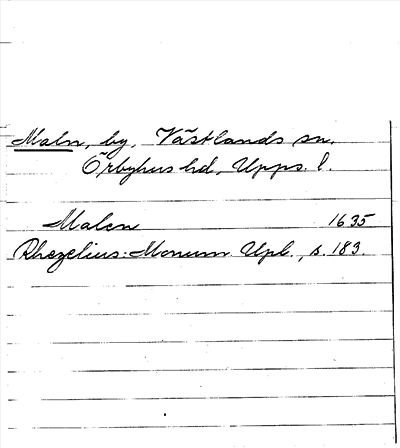 Maln, by, Västlands sn.
Örbyhus hd, Upps. l.
Malen 1635
Rhezelius: Monum. Upl., s. 183.